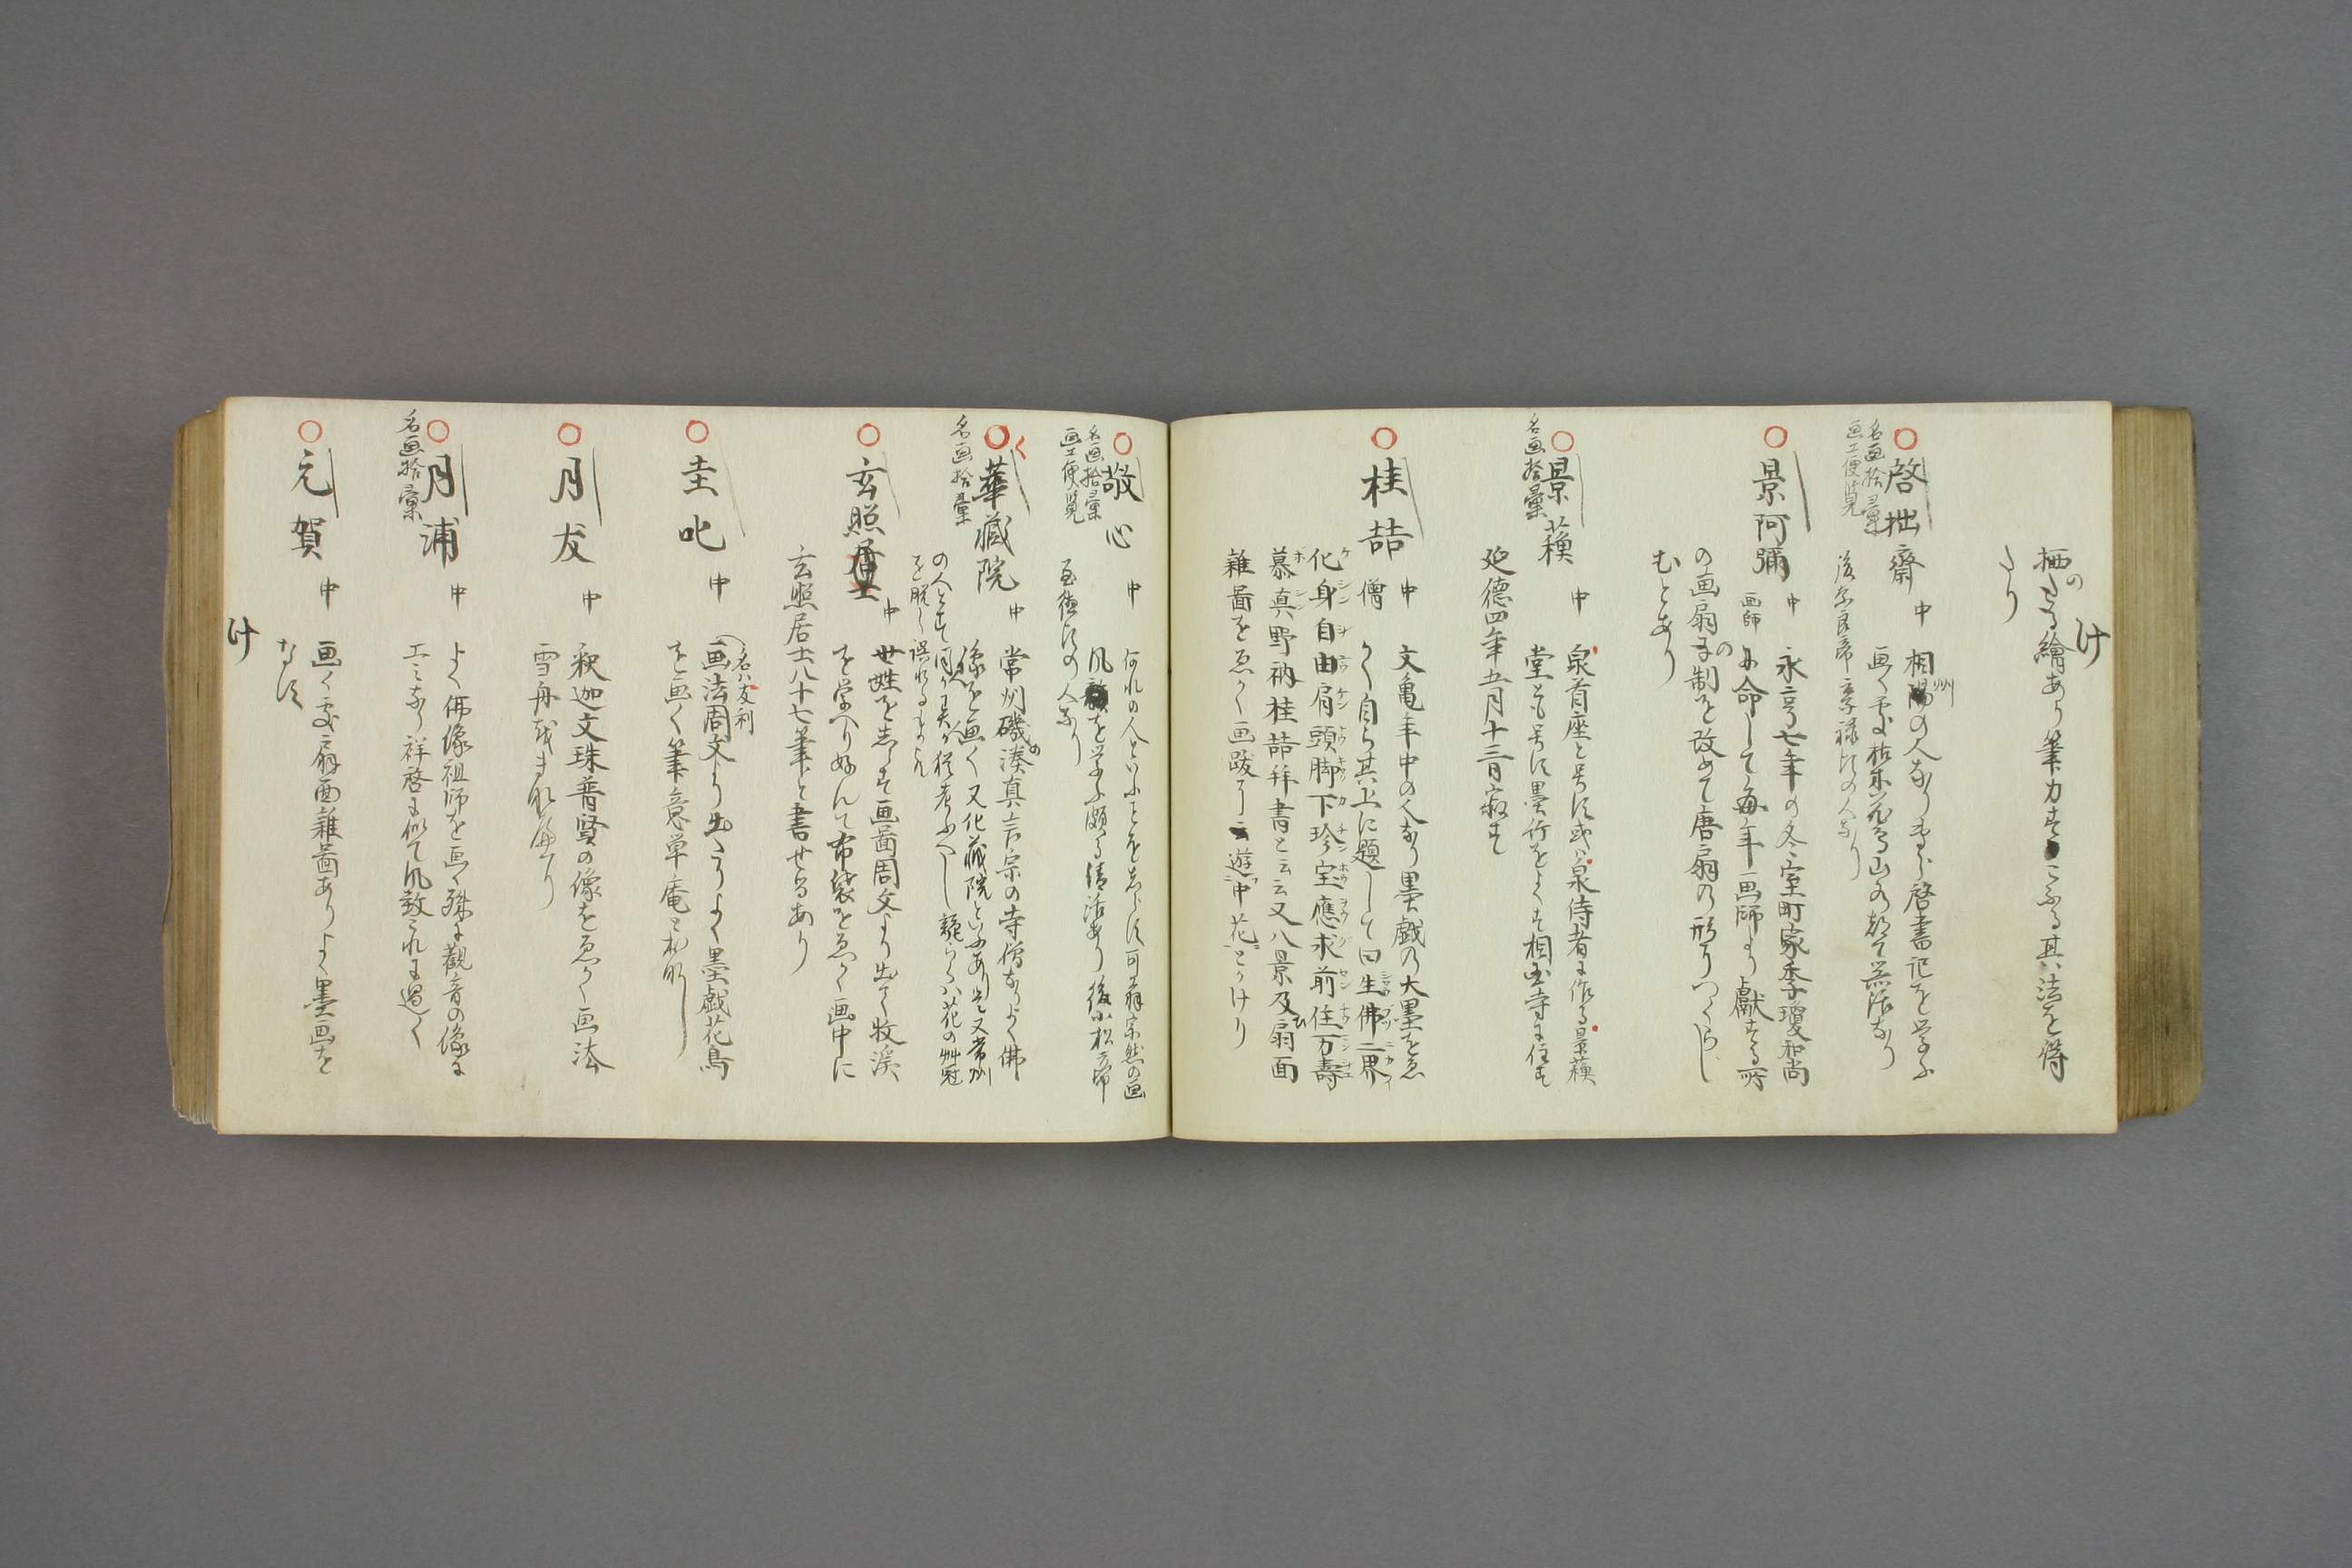 け
栖のたる繪あり筆力すこふる其法を得
たり
啓拙齋 中 相州の人なり 啓書記を学ふ
名画拾彙
画工便覧
画く處枯木花鳥山水都て無落なり
後奈良帝享禄頃の人なり
景阿彌 中 永享七年の冬室町家季瓊和尚
画師 に命して毎年画師より獻する所
の画扇の制を改めて唐扇の形りつくらし
むとあり
景蘓 中 泉首座と号す或は泉侍者に作る景蘓
名画拾彙
堂とも号す墨竹をよくす相国寺に住す
延德四年五月十三日寂す
桂喆 中 文亀年中の人なり墨戯の大墨をゑ
僧 かく自ら其上に題して曰生佛二界
化身自由肩頭脚下珍宝應求前住万壽
慕真野衲桂喆拝書と云云又八景及ひ扇面
雜畫をゑかく画跋に云遊中花とかけり
敬心 中 何れの人といふことをしらす可翁宗然の画
名画拾彙
画工便覧
風を学ふ頗る清活あり後小松帝
至德頃の人なり
く
華藏院 中 常州磯の湊真言宗の寺僧なりよく佛
名画拾彙
像を画く又化藏院といふあり是又常州
の人とす同しきか猶考ふへし疑らくハ花の艸冠
を脱し誤れるならん
玄照居士 中 世姓をしらす画啚周文より出て牧渓
を学へり好んて布袋をゑかく画中に
玄照居士八十七筆と書せるあり
圭叱 中 画法周文より出たりよく墨戯花鳥
名ハ友利
を画く筆意単庵に相似
月友 中 釈迦文珠普賢の像をゑかく画法
雪舟
月浦 中 よく佛像祖師を画く殊に觀音の像に
名画拾彙
工ミなり祥啓に似て風致これに過く
元賀 中 画く處扇面雜啚ありよく墨画を
なす
け